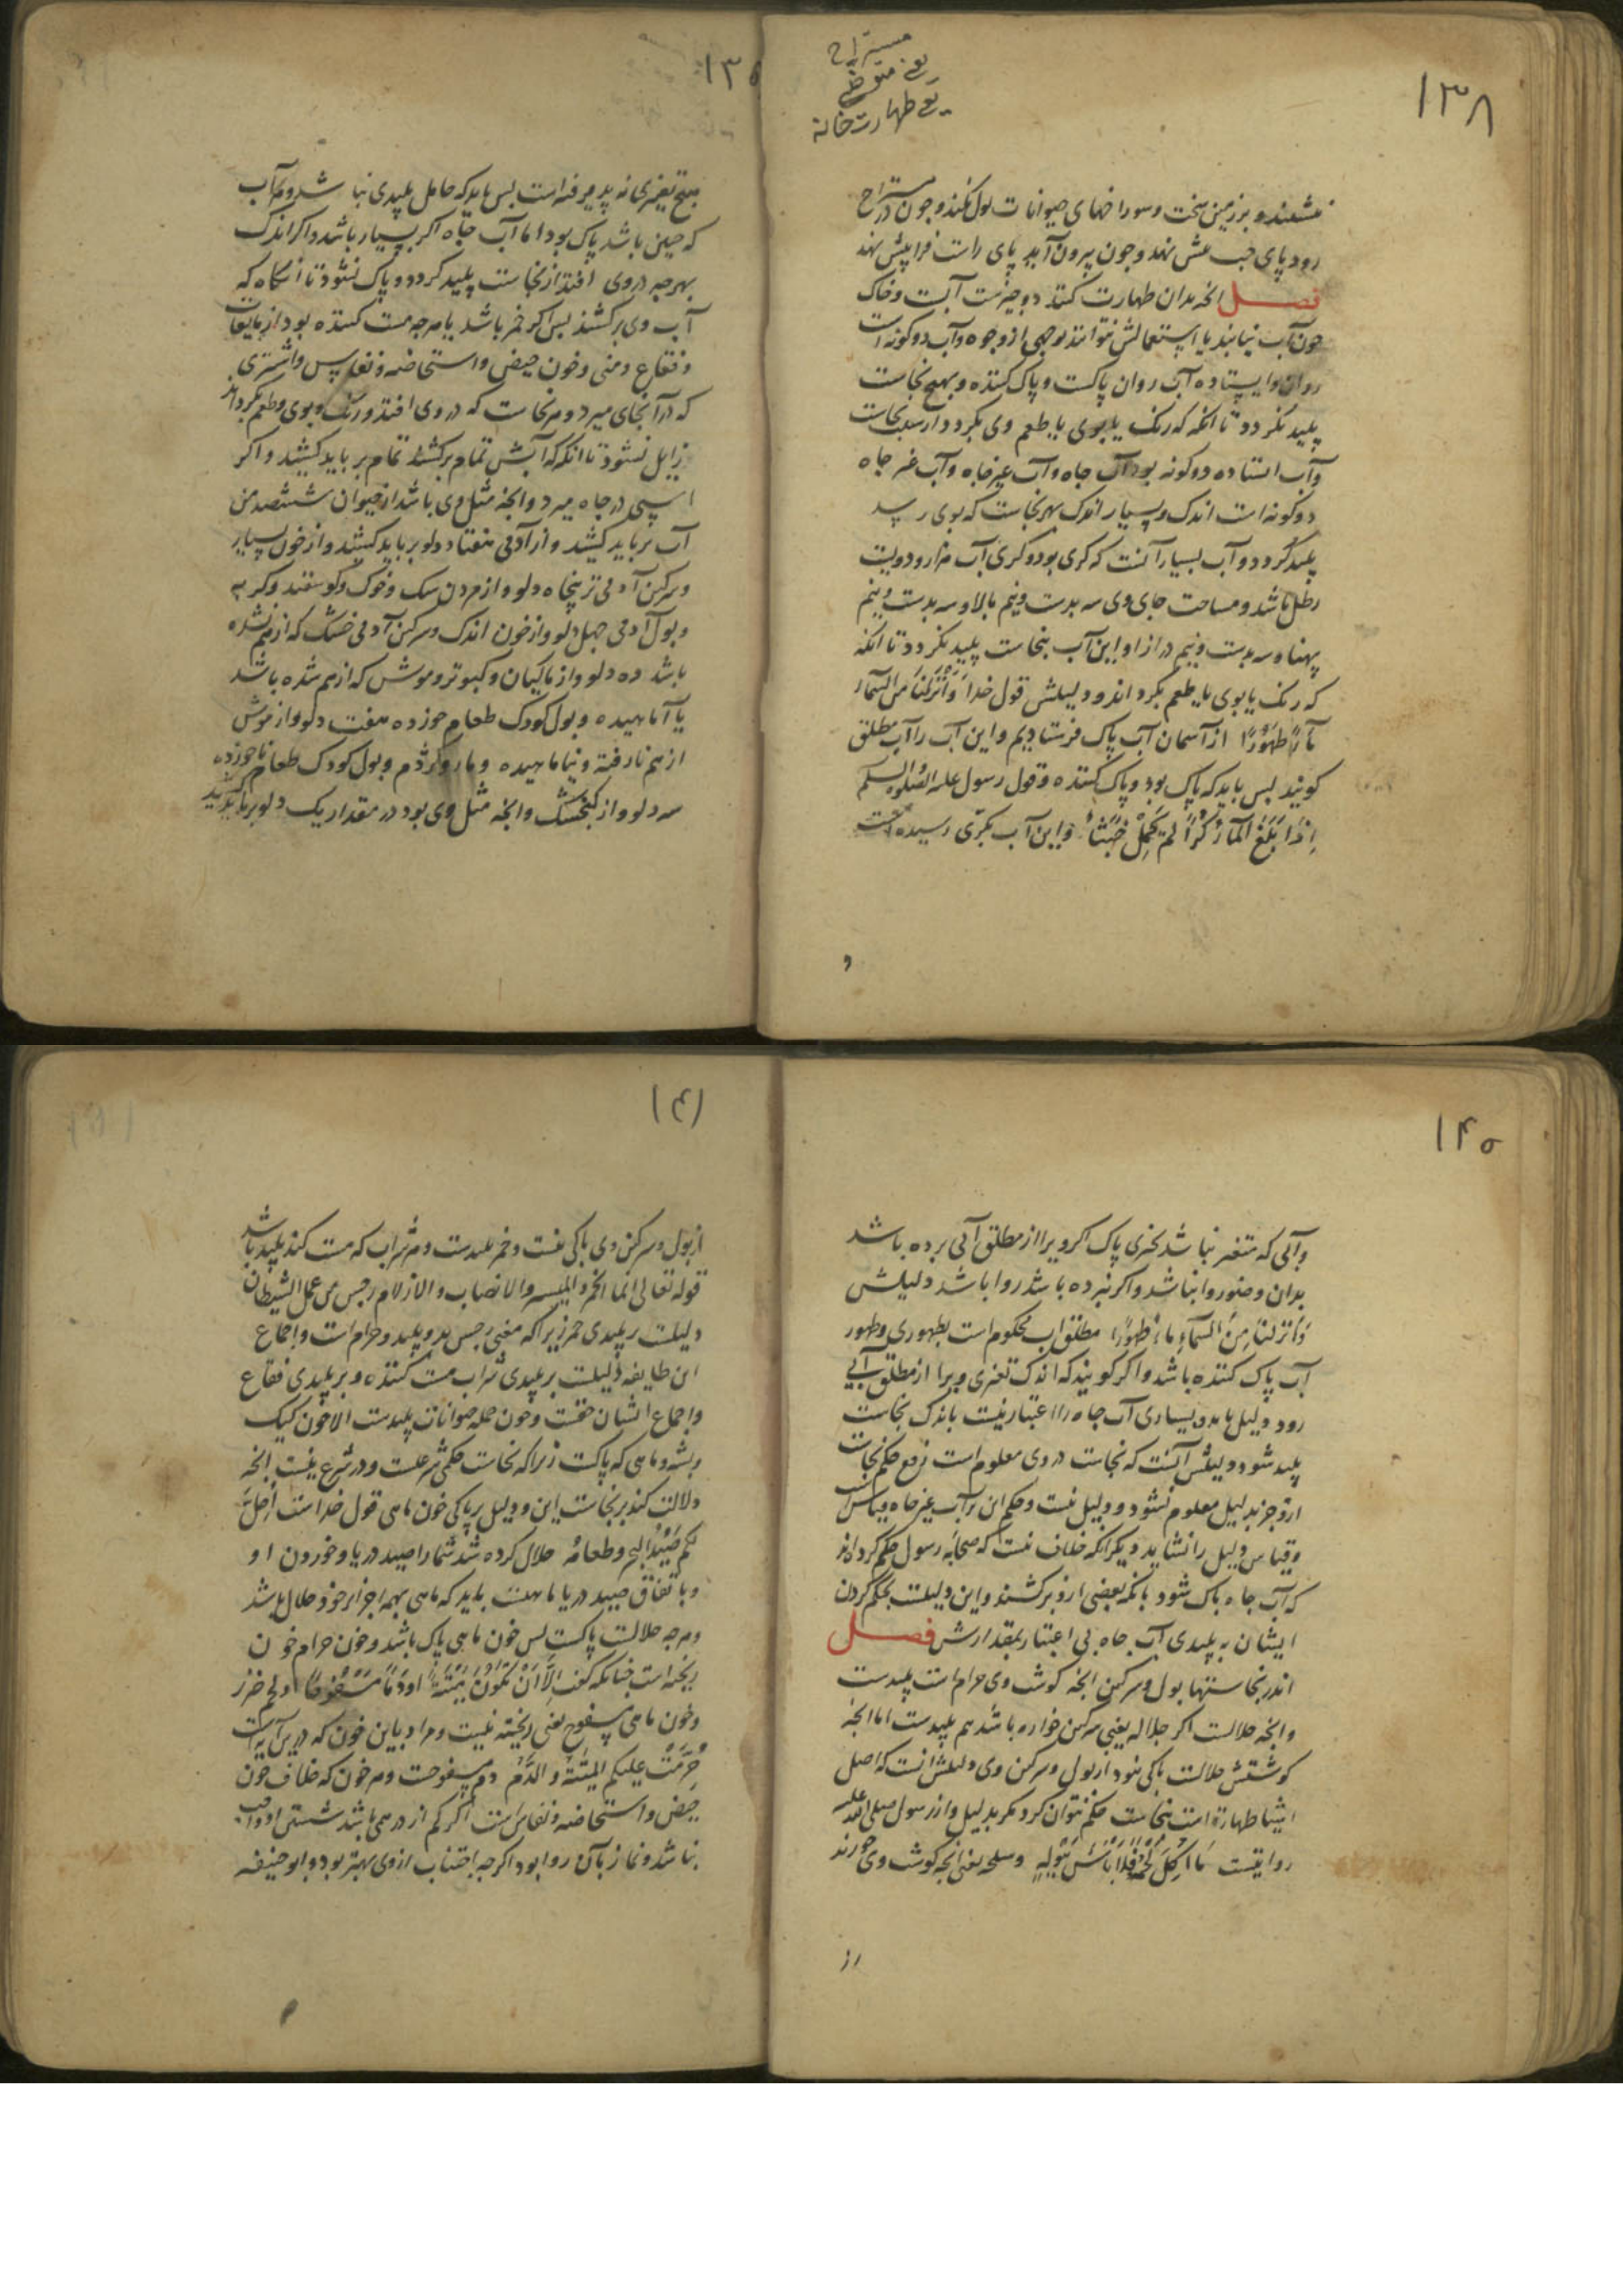 ۱۳۸
مستراح
یعنی متوضی
یعنی طهارت خانه
ننشیند و بر زمین سخت و سوراخهای حیوانات بول نکند و چون در مستراح
رود پای چپ پیش نهد و چون بیرون آید پای راست فرا پیش نهد
فصل انچه بدان طهارت کنند دو چیزست آب و خاک
چون آب نیابند یا استعمالش نتوانند بوجهی از وجوه و آب دو گونه است
روان و ایستاده آب روان پاکست و پاک کننده و بهیچ نجاست
پلید نگردد تا انکه که رنگ یا بوی یا طعم وی بگردد از سبب نجاست
و آب استاده دو گونه بود آب چاه و آب غیر چاه و آب غیر چاه
دو گونه است اندک و بسیار اندک بهر نجاست که بوی رسد
پلید گردد و آب بسیار آنست که کری بود و کری آب هزار و دویست
رطل باشد و مساحت جای وی سه بدست و نیم بالا و سه بدست و نیم
پهنا و سه بدست و نیم دراز او این آب بنجاست پلید نگردد تا انکه
که رنگ یا بوی یا طعم بگرداند و دلیلش قول خدا وَأَنْزَلْنَا مِنَ السَّمَاءِ
مَاءً طَهُورًا از آسمان آب پاک فرستادیم و این آب را آب مطلق
گویند پس باید که پاک بود و پاک کننده و قول رسول علیه الصلوة والسلم
إِذَا بَلَغَ الْمَاءُ كُرًّا لَمْ يَحْمِلْ خَبَثًا و این آب بکری رسیده است
و
۱۳۵
هیچ تغیری نه پذیرفته است پس باید که حامل پلیدی نباشد و هر آب
که چنین باشد پاک بود اما آب چاه اگر بسیار باشد و اگر اندک
بهر چه در وی افتد از نجاست پلید گردد و پاک نشود تا آنگاه که
آب وی برکشند پس اگر خمر باشد یا هر چه مست کننده بود از مایعات
و فقاع و منی و خون حیض و استحاضه و نفاس و اشتری
که در آنجای میرد و هر نجاست که در وی افتد و رنگ و بوی و طعم بگرداند
زایل نشود تا انکه که آبش تمام برکشند تمام بر باید کشید و اگر
اسپی در چاه میرد و انچه مثل وی باشد از حیوان ششصد من
آب بر باید کشید و از آدمی هفتاد دلو بر باید کشید و از خون بسیار
و سرگین آدمی تر پنجاه دلو و از مردن سگ و خوک و گوسفند و گربه
و بول آدمی چهل دلو و از خون اندک و سرگین آدمی خشک که از هم نشده
باشد ده دلو و از ماکیان و کبوتر و موش که از هم شده باشد
یا آماهیده و بول کودک طعام خورده هفت دلو و از موش
از هم نا رفته و نیاماهیده و مار و کژدم و بول کودک طعام ناخورده
سه دلو و از گنجشک و انچه مثل وی بود در مقدار یک دلو بر باید کشید
۱۴۰
و آبی که متغیر نباشد بچیزی پاک اگر ویرا از مطلق آبی برده باشد
بدان وضو روا نباشد و اگر نبرده باشد روا باشد دلیلش
وَأَنْزَلْنَا مِنَ السَّمَاءِ مَاءً طَهُورًا مطلق اب محکوم است بطهوری و طهور
آب پاک کننده باشد و اگر گویند که اندک تغیری ویرا از مطلق آبی
رود دلیل باید و بسیاری آب چاه را اعتبار نیست باندک نجاست
پلید شود و دلیلش آنست که نجاست در وی معلوم است رفع حکم نجاست
ازو جز بدلیل معلوم نشود و دلیل نیست و حکم این بر آب غیر چاه قیاس است
و قیاس دلیل را نشاید دیگر انکه خلاف نیست که صحابه رسول حکم کرده‌اند
که آب چاه پاک شود بانکه بعضی ازو برکشند و این دلیلست بحکم کردن
ایشان به پلیدی آب چاه بی اعتبار بمقدارش فصل
اندر نجاستها بول و سرگین انچه گوشت وی حرام است پلیدست
و انچه حلالست اگر جلاله یعنی سرگین خواره باشد هم پلیدست اما انچه
گوشتش حلالست باکی نبود از بول و سرگین وی و دلیلش انست که اصل
اشیا طهارة است بنجاست حکم نتوان کرد مگر بدلیل و از رسول صلی الله علیه
روایتست مَا أُكِلَ لَحْمُهُ فَلَا بَأْسَ بِبَوْلِهِ وسلحه یعنی انچه گوشت وی خورند
از
۱۴۱
از بول و سرگین وی باکی نیست و خمر پلیدست و هر شراب که مست کند پلید باشد
قوله تعالی انما الخمر والمیسر والانصاب والازلام رجس من عمل الشیطان
دلیلست بر پلیدی خمر زیرا که معنی رجس بد و پلید و حرام است و اجماع
این طایفه دلیلست بر پلیدی شراب مست کننده و بر پلیدی فقاع
و اجماع ایشان حجتست و خون جمله حیوانات پلیدست الا خون کیک
و پشه و ماهی که پاکست زیرا که نجاست حکمی شرعیست و در شرع نیست انچه
دلالت کند بر نجاست این و دلیل بر پاکی خون ماهی قول خداست أُحِلَّ
لَكُمْ صَيْدُ البحر وطعامه حلال کرده شد شما را صید دریا و خوردن او
و باتفاق صید دریا ماهیست باید که ماهی بهمه اجزاء خود حلال باشد
و هر چه حلالست پاکست پس خون ماهی پاک باشد و خون حرام خون
ریخته است چنانکه گفت إِلَّا أَنْ يَكُونَ مَيْتَةً أَوْ دَمًا مَسْفُوحًا او لحم خنزیر
و خون ماهی مسفوح یعنی ریخته نیست و مراد باین خون که درین آیه است
حُرِّمَتْ علیکم المیتةُ والدَّمُ دم مسفوحست و هر خون که خلاف خون
حیض و استحاضه و نفاس است اگر کم از درهمی باشد شستن او واجب
نباشد و نماز بآن روا بود اگر چه اجتناب از وی بهتر بود و ابو حنیفه